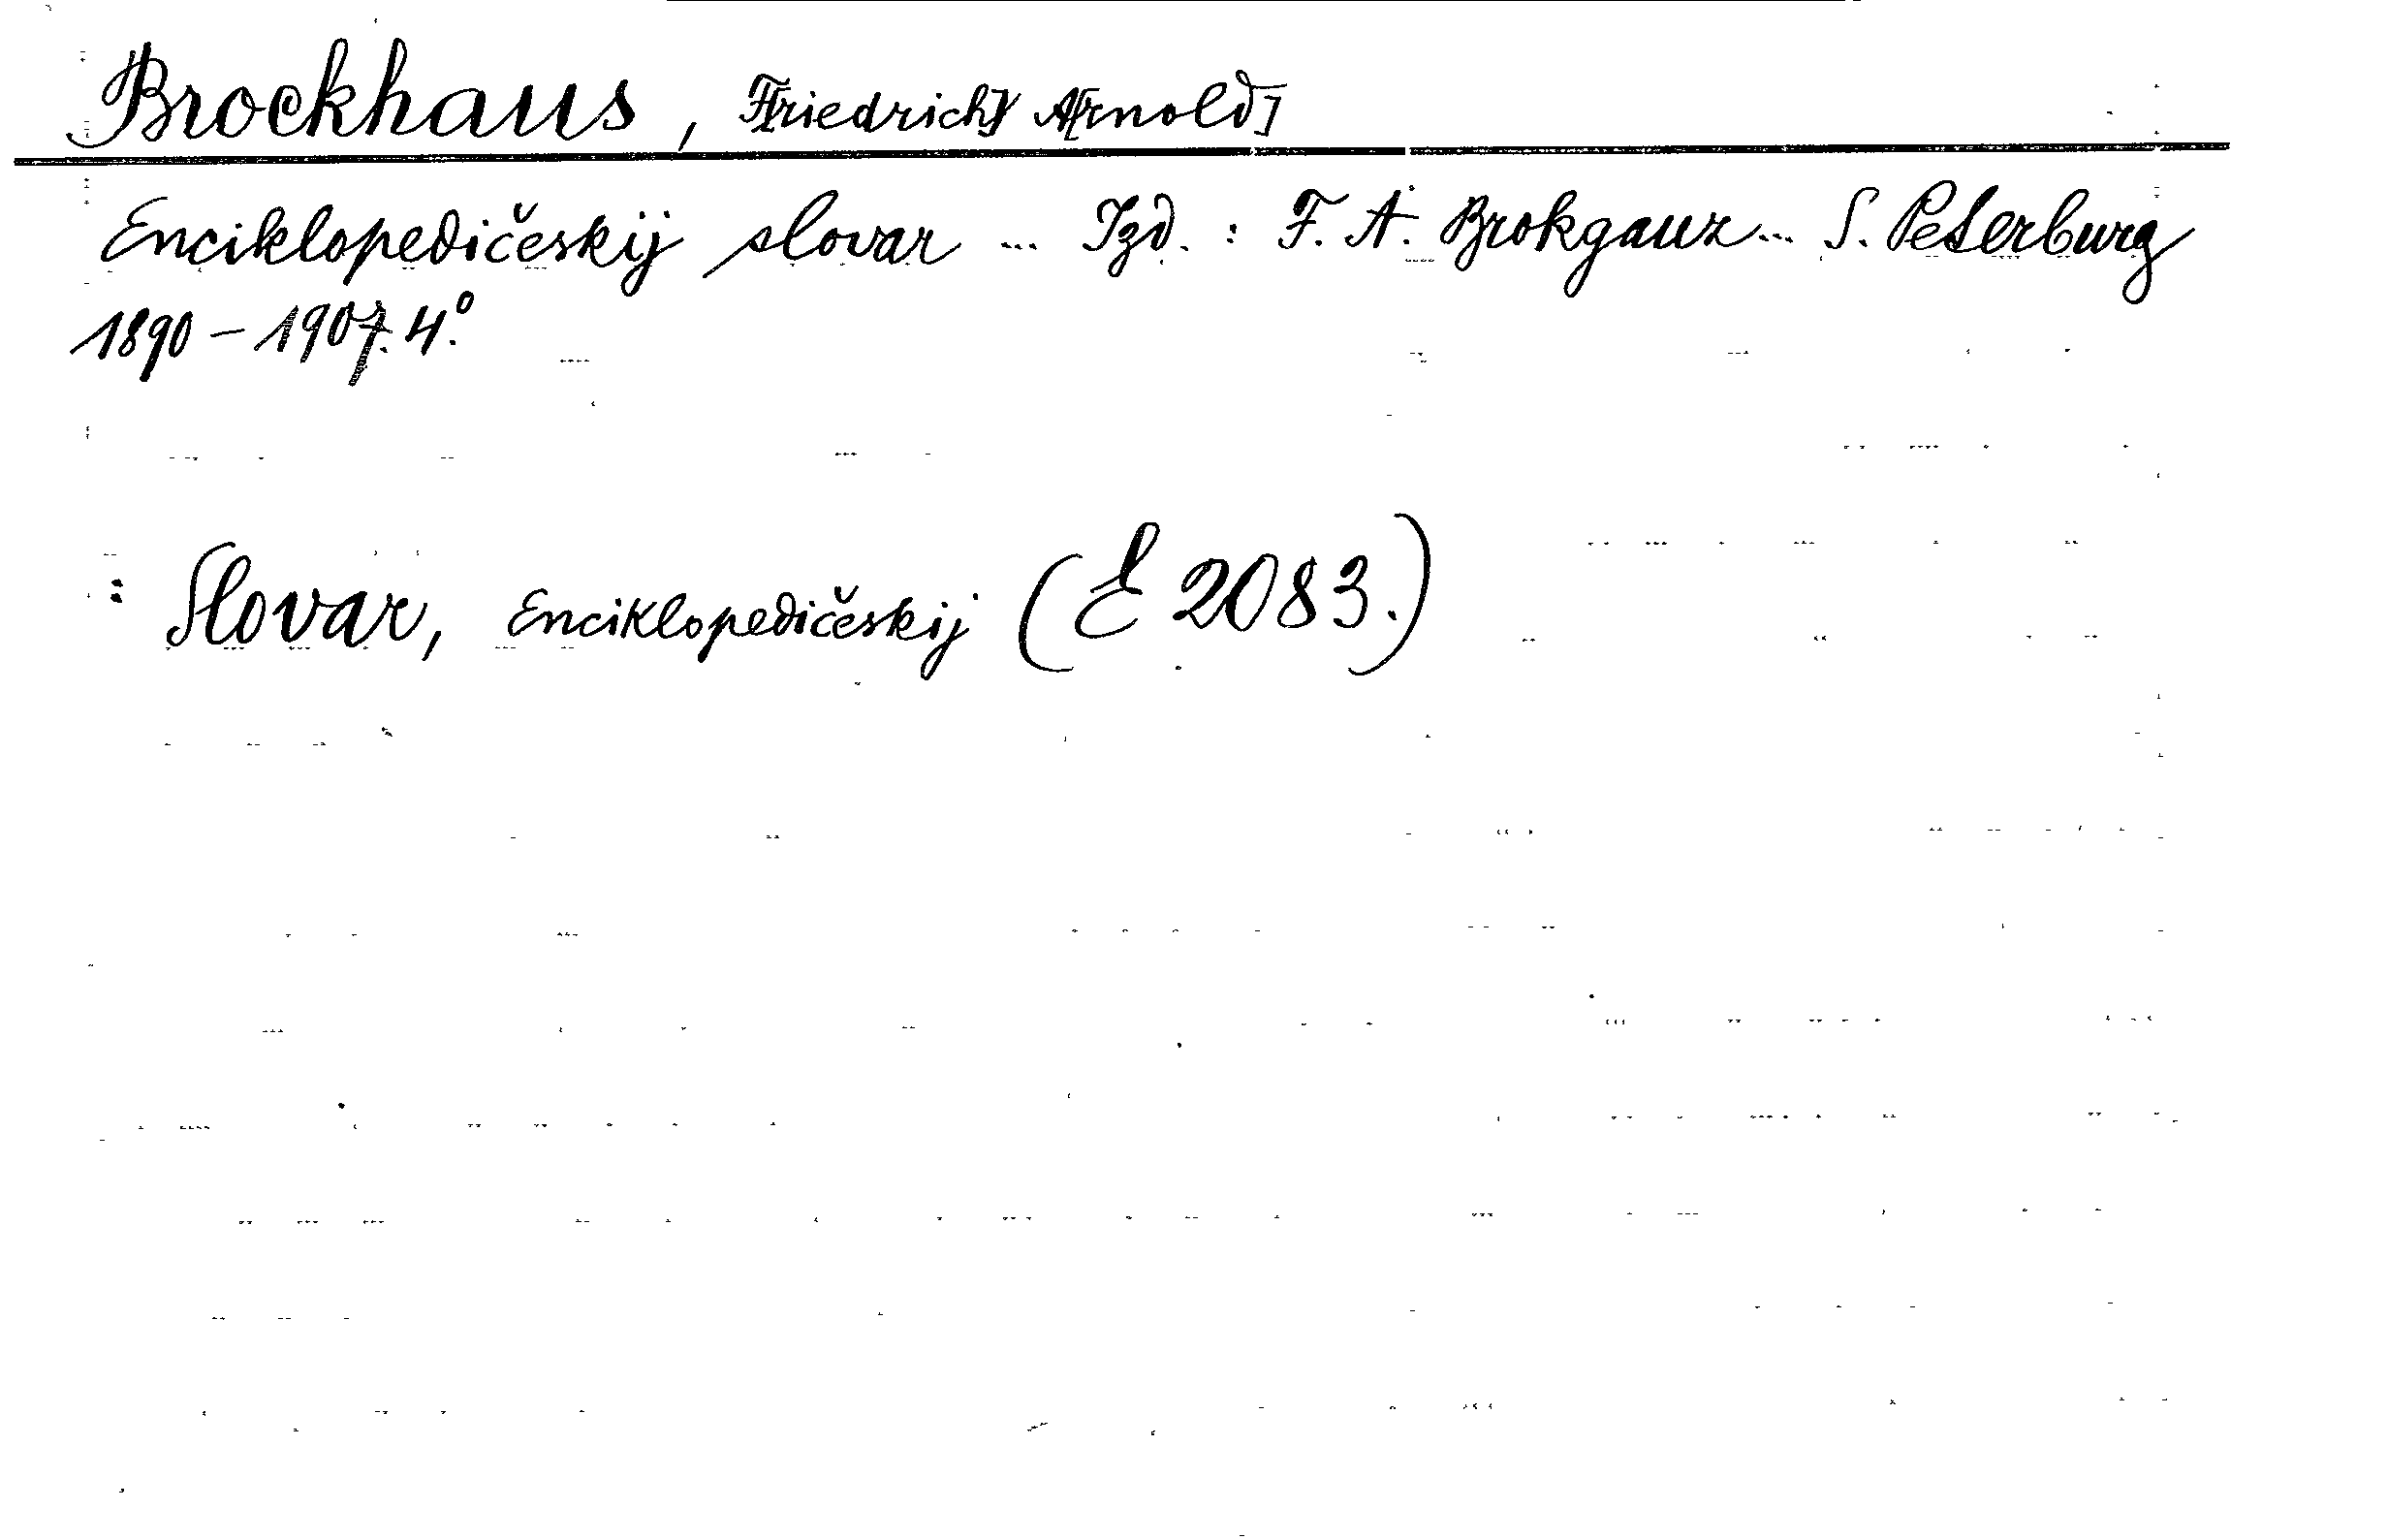 Brockhaus, F[riedrich] A[rnold]
Enciklopedičeskij slovar ... Izd. : F. A. Brokgauz... S. Peterburg
1890-1907. 4°.
: Slovar, Enciklopedičeskij (E 2083.)